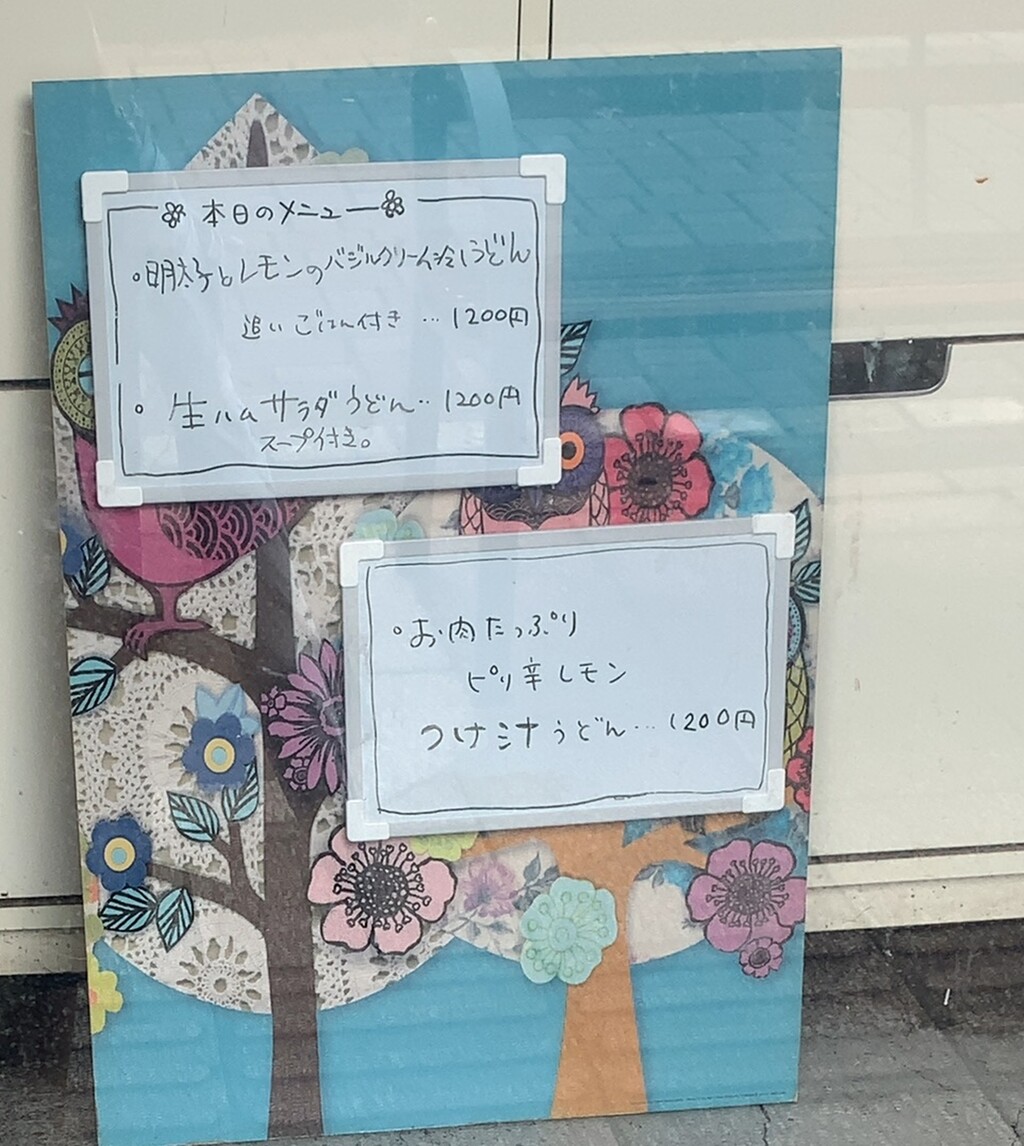 本日のメニュー
。明太子とレモンのバジルクリーム冷しうどん
追いごはん付き…1200円
。生ハムサラダうどん‥1200円
スープ付き。
。お肉たっぷり
ピリ辛レモン
つけ汁うどん…1200円